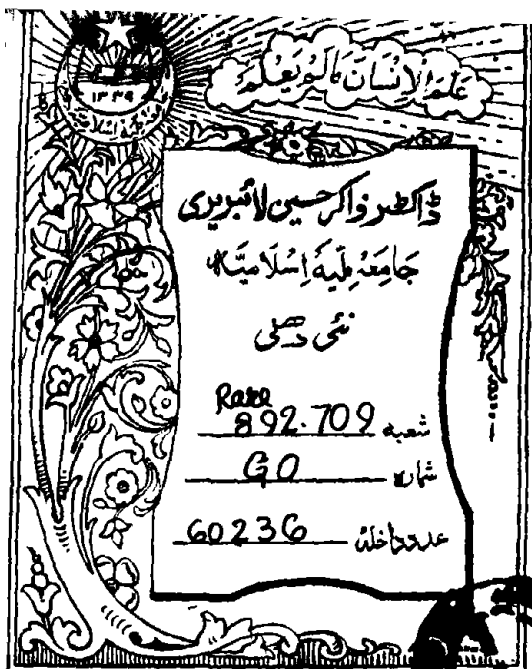 عَلَّمَ الْاِنْسَانَ مَا لَمْ يَعْلَمْ
۱۳۳۹
ڈاکٹر ذاکر حسین لائبریری
جَامعَہ مِلّیَہ اِسْلَامیَہ
نئی دھلی
Rare
شعبہ 892.709
شمارہ GO
عدد داخلہ 60236